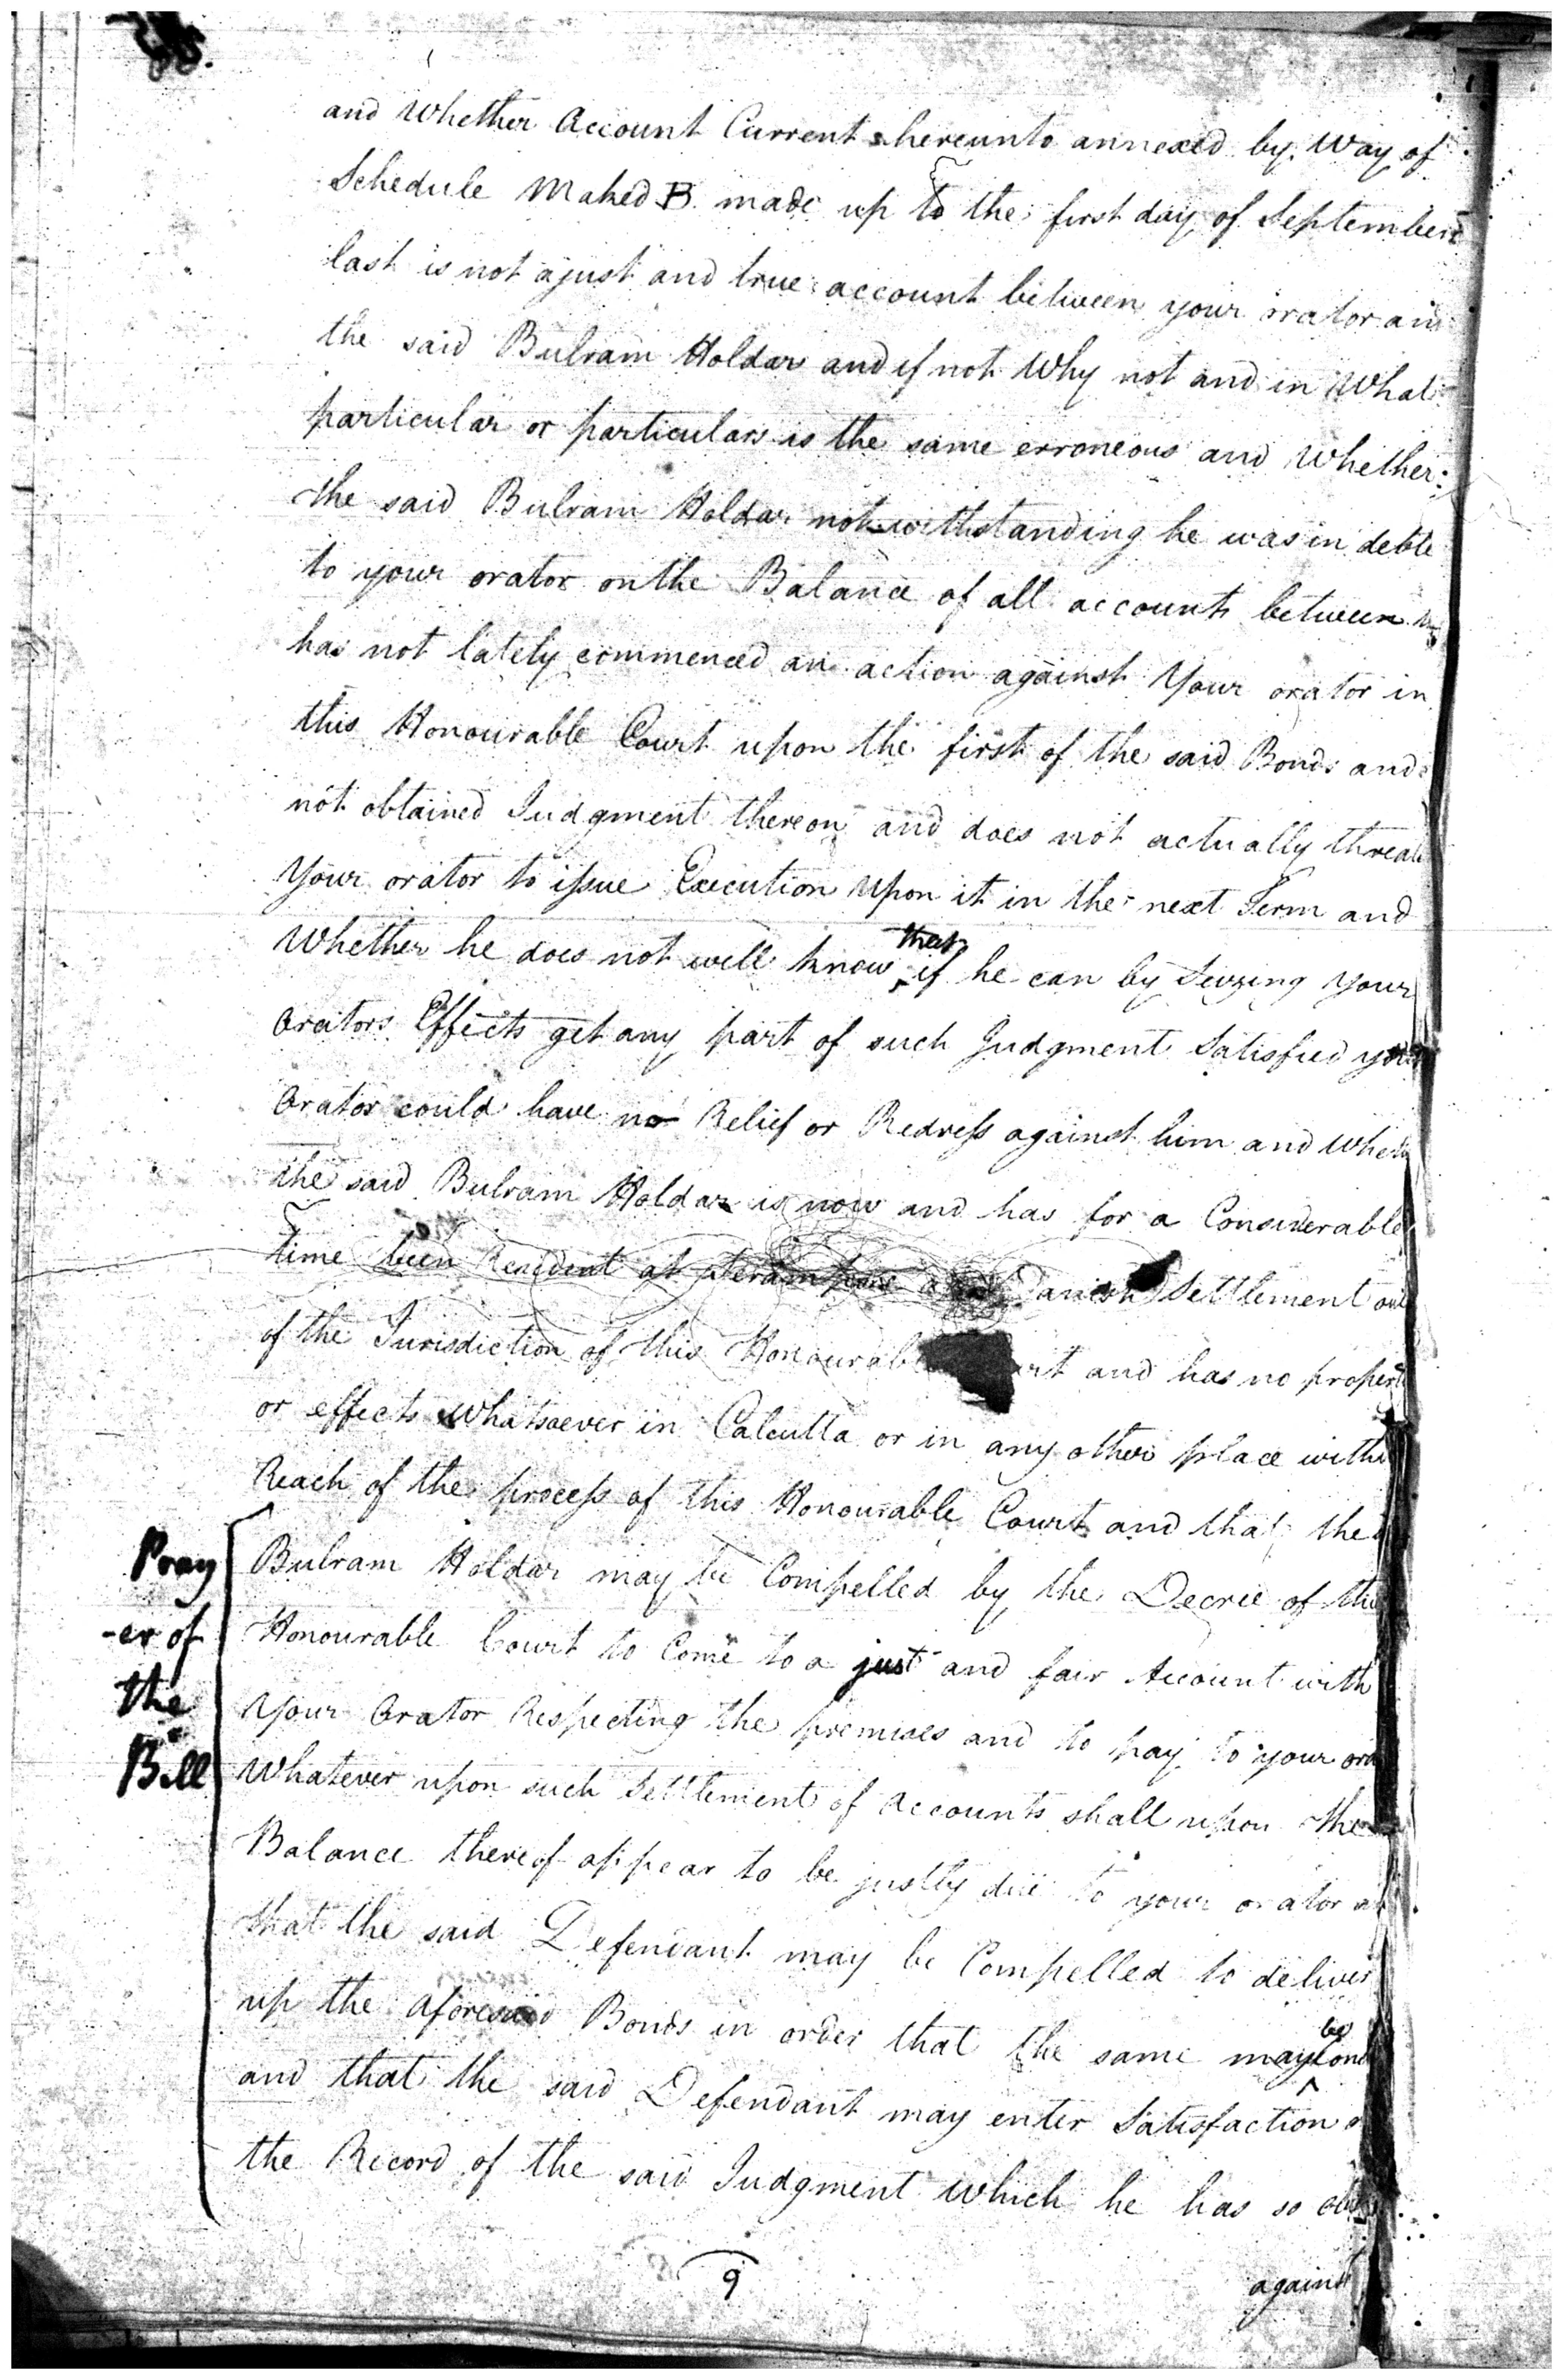 and Whether Account Current hereunto annexed by Way of
Schedule Maked B. made up to the first day of September
last is not a just and true account between your orator an
the said Bulram Holdar and if not Why not and in What
particular or particulars is the same erroneous and Whether
the said Bulram Holdar notwithstanding he was in debte
to your orator on the Balance of all accounts between
has not lately commenced an action against Your orator in
this Honourable Court upon the first of the said Bonds and
not obtained Judgment thereon and does not actually threat
Your orator to issue Execution Upon it in the next Term and
Whether he does not well know that if he can by Seizing your
Orators Effects get any part of such Judgment Satisfied your
Orator could have no Relief or Redress against him and Wheth
the said Bulram Holdar is now and has for a Considerable
time been Resident at Serampore a Danish Settlement out
of the Jurisdiction of this Honourabl rt and has no propert
or effects Whatsoever in Calcutta or in any other place withi
Reach of the process of this Honourable Court and that the
Pray
-er of
the
Bill
Bulram Holdar may be Compelled by the Decree of thi
Honourable Court to Come to a just and fair Account with
Your Orator Respecting the premises and to pay to your ora
Whatever upon such Settlement of Accounts shall upon the
Balance thereof appear to be justly due to your orator a
that the said Defendant may be Compelled to deliver
up the aforesaid Bonds in order that the same may be Canc
and that the said Defendant may enter Satisfaction o
the Record of the said Judgment which he has so obt
9
against